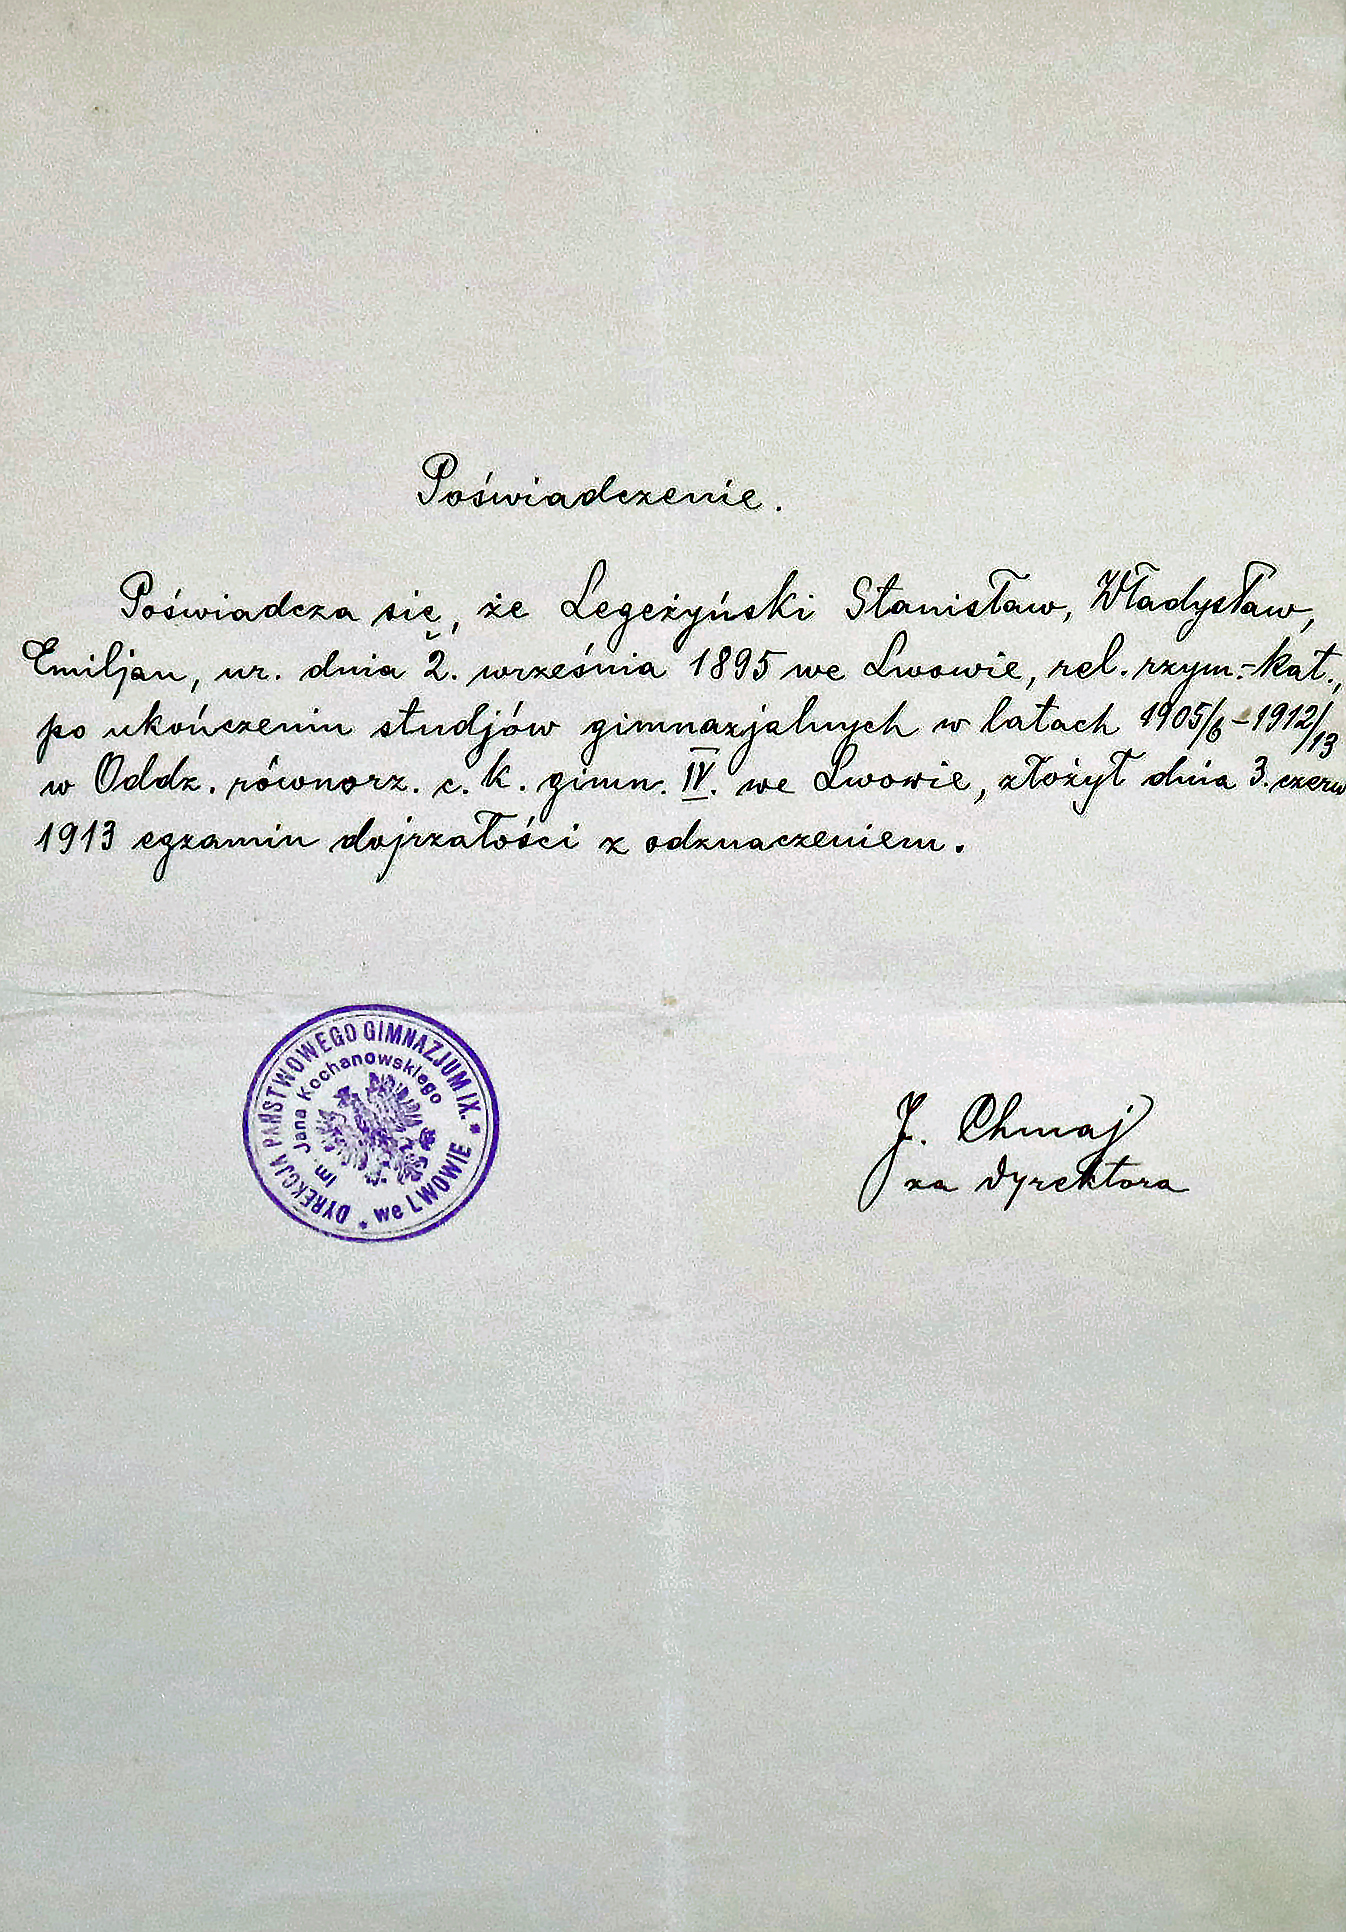 Poświadczenie.
Poświadcza się, że Legeżyński Stanisław, Władysław,
Emiljan, ur. dnia 2. września 1895 we Lwowie, rel. rzym.-kat.,
po ukończeniu studjów gimnazjalnych w latach 1905/6 - 1912/13
w Oddz. równorz. c. k. gimn. IV. we Lwowie, złożył dnia 3. czerw
1913 egzamin dojrzałości z odznaczeniem.
DYREKCJA PAŃSTWOWEGO GIMNAZJUM IX.
Im. Jana Kochanowskiego
* we LWOWIE *
J. Chmaj
za dyrektora